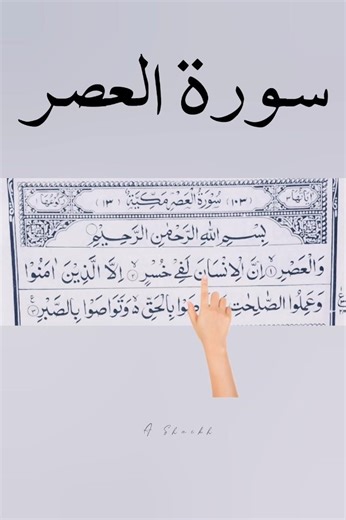 سورة العصر
(١٠٣) سُوْرَةُ الْعَصْرِ مَكِّيَّةٌ (١٣)
بِسْمِ اللّٰهِ الرَّحْمٰنِ الرَّحِيْمِ
وَالْعَصْرِ ۙ﴿١﴾ اِنَّ الْاِنْسَانَ لَفِيْ خُسْرٍ ۙ﴿٢﴾ اِلَّا الَّذِيْنَ اٰمَنُوْا
وَعَمِلُوا الصّٰلِحٰتِ بِالْحَقِّ ۙ وَتَوَاصَوْا بِالصَّبْرِ ﴿٣﴾
A Shaikh